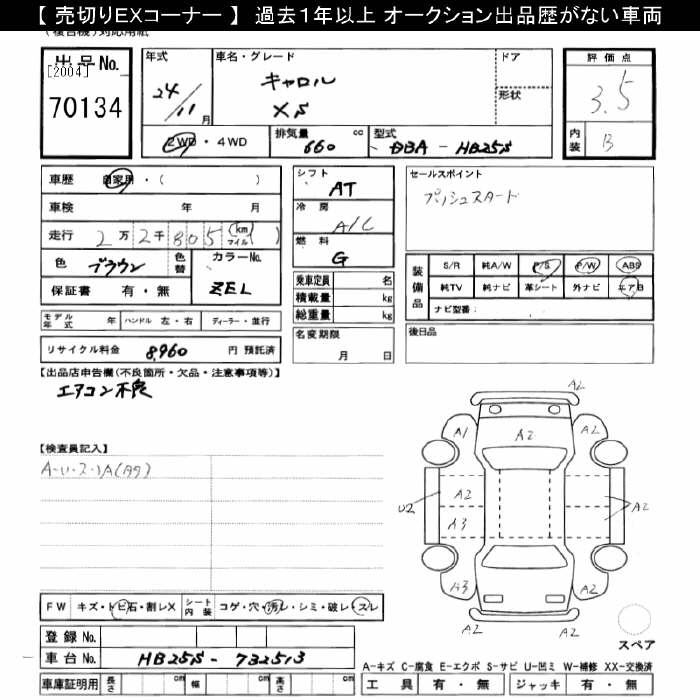 【 売切りEXコーナー 】 過去1年以上 オークション出品歴がない車両
(複合機)対応用紙
出品No.
[2004]
70134
年式
24/11月
車名・グレード
キャロル
XS
ドア
形状
評価点
3.5
内装
B
2WD・4WD
排気量 660 cc
型式 DBA - HB25S
車歴 自家用・( )
車検 年 月
走行 2万2千805 (km マイル)
色 ブラウン 色替
カラーNo.
ZEL
保証書 有・無
モデル年式 年 ハンドル 左・右 ディーラー・並行
リサイクル料金 8,960 円 預託済
シフト
AT
冷房
A/C
燃料
G
乗車定員 名
積載量 kg
総重量 kg
名変期限
月 日
セールスポイント
プッシュスタート
装備品
S/R 純A/W P/S P/W ABS
純TV 純ナビ 革シート 外ナビ エアB
ナビ型番:
後日品
【出品店申告欄(不良箇所・欠品・注意事項等)】
エアコン不良
【検査員記入】
A2
A1 A2 A2
U2 A2 A2
A3
A3 A2
A2
スペア
FW キズ・トビ石・割レX シート内装 コゲ・穴・汚レ・シミ・破レ・スレ
登録 No.
車台 No. HB25S - 732513
車庫証明用 長さ cm 幅 cm 高さ cm
A-キズ C-腐食 E-エクボ S-サビ U-凹ミ W-補修 XX-交換済
工具 有・無 ジャッキ 有・無